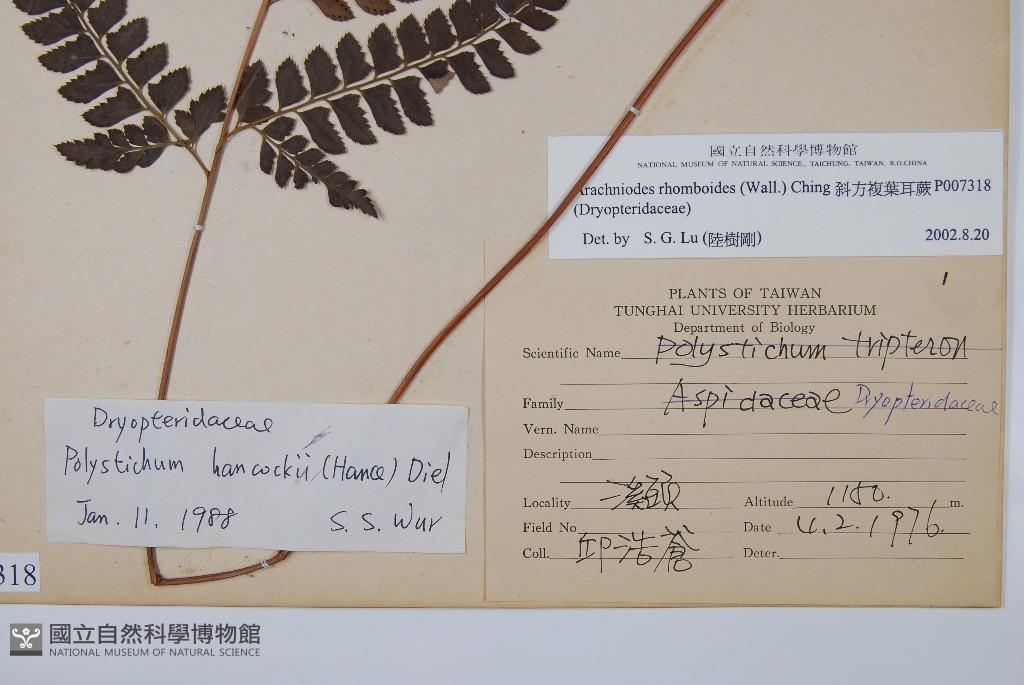 國立自然科學博物館
NATIONAL MUSEUM OF NATURAL SCIENCE, TAICHUNG, TAIWAN, R.O.CHINA
Arachniodes rhomboides (Wall.) Ching 斜方複葉耳蕨 P007318
(Dryopteridaceae)
Det. by S. G. Lu (陸樹剛) 2002.8.20
1
PLANTS OF TAIWAN
TUNGHAI UNIVERSITY HERBARIUM
Department of Biology
Scientific Name Polystichum tripteron
Family Aspidaceae Dryopteridaceae
Vern. Name
Description
Locality 溪頭 Altitude 1180. m.
Field No Date 4.2.1976.
Coll. 邱浩蒼 Deter.
Dryopteridaceae
Polystichum hancockii (Hance) Diel
Jan. 11. 1988 S. S. Wur
318
國立自然科學博物館
NATIONAL MUSEUM OF NATURAL SCIENCE